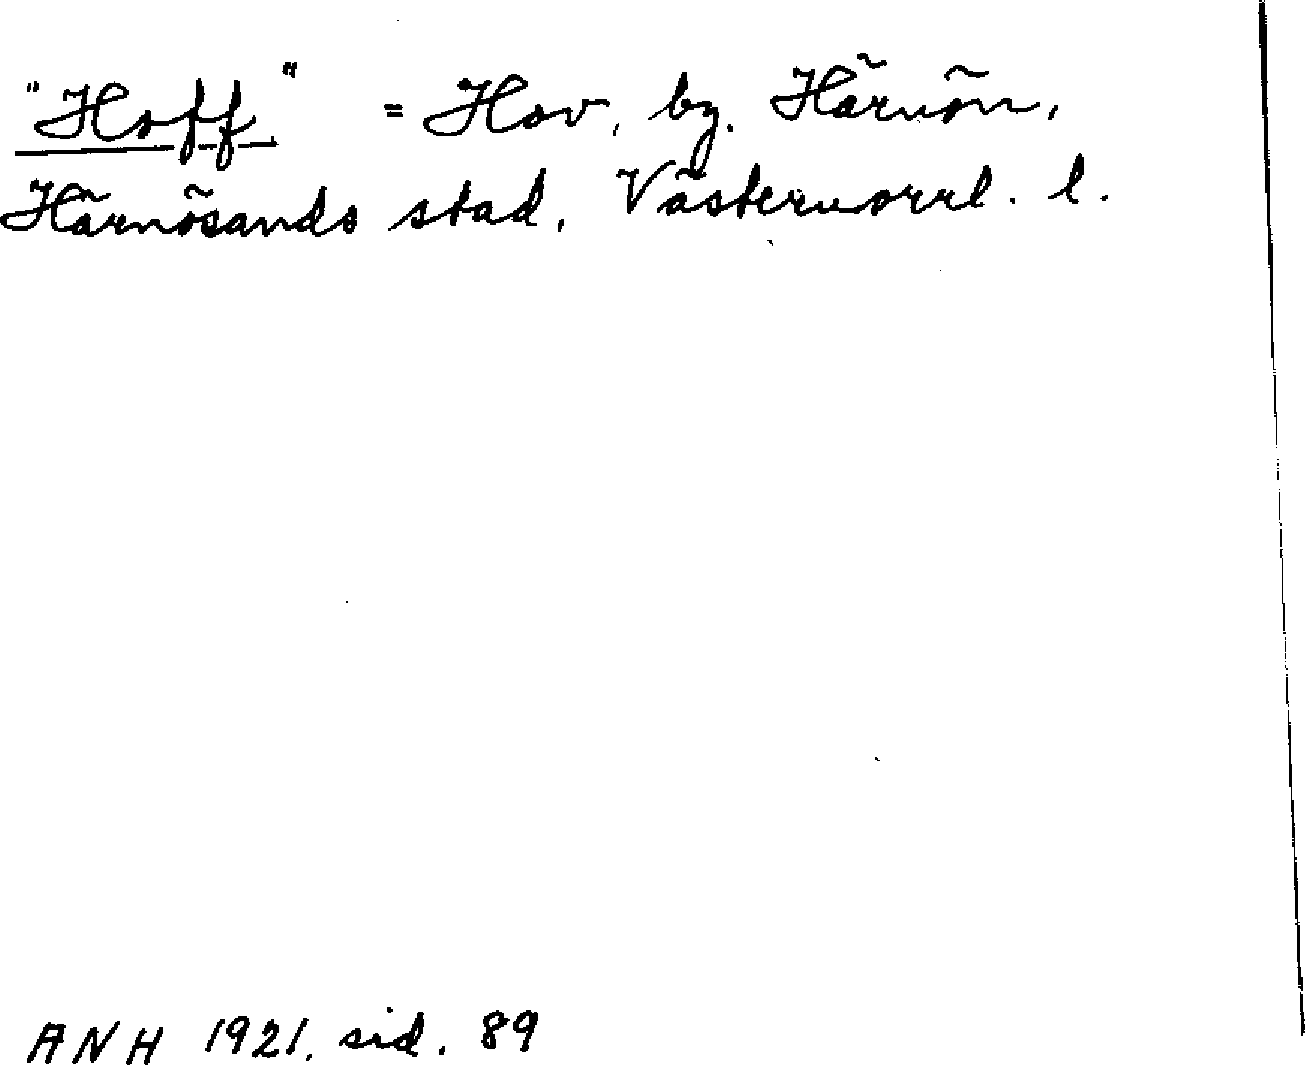 "Hoff" = Hov, by. Härnön,
Härnösands stad, Västernorrl. l.
ANH 1921. sid. 89